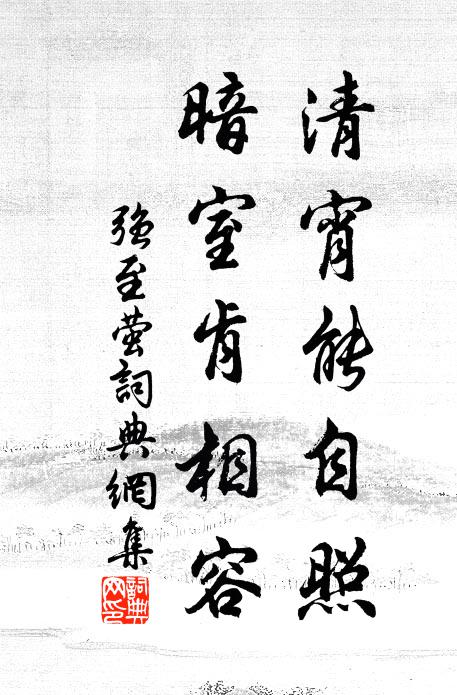 清宵能自照
暗室肯相容
強至萤詞典網集
詞典网印